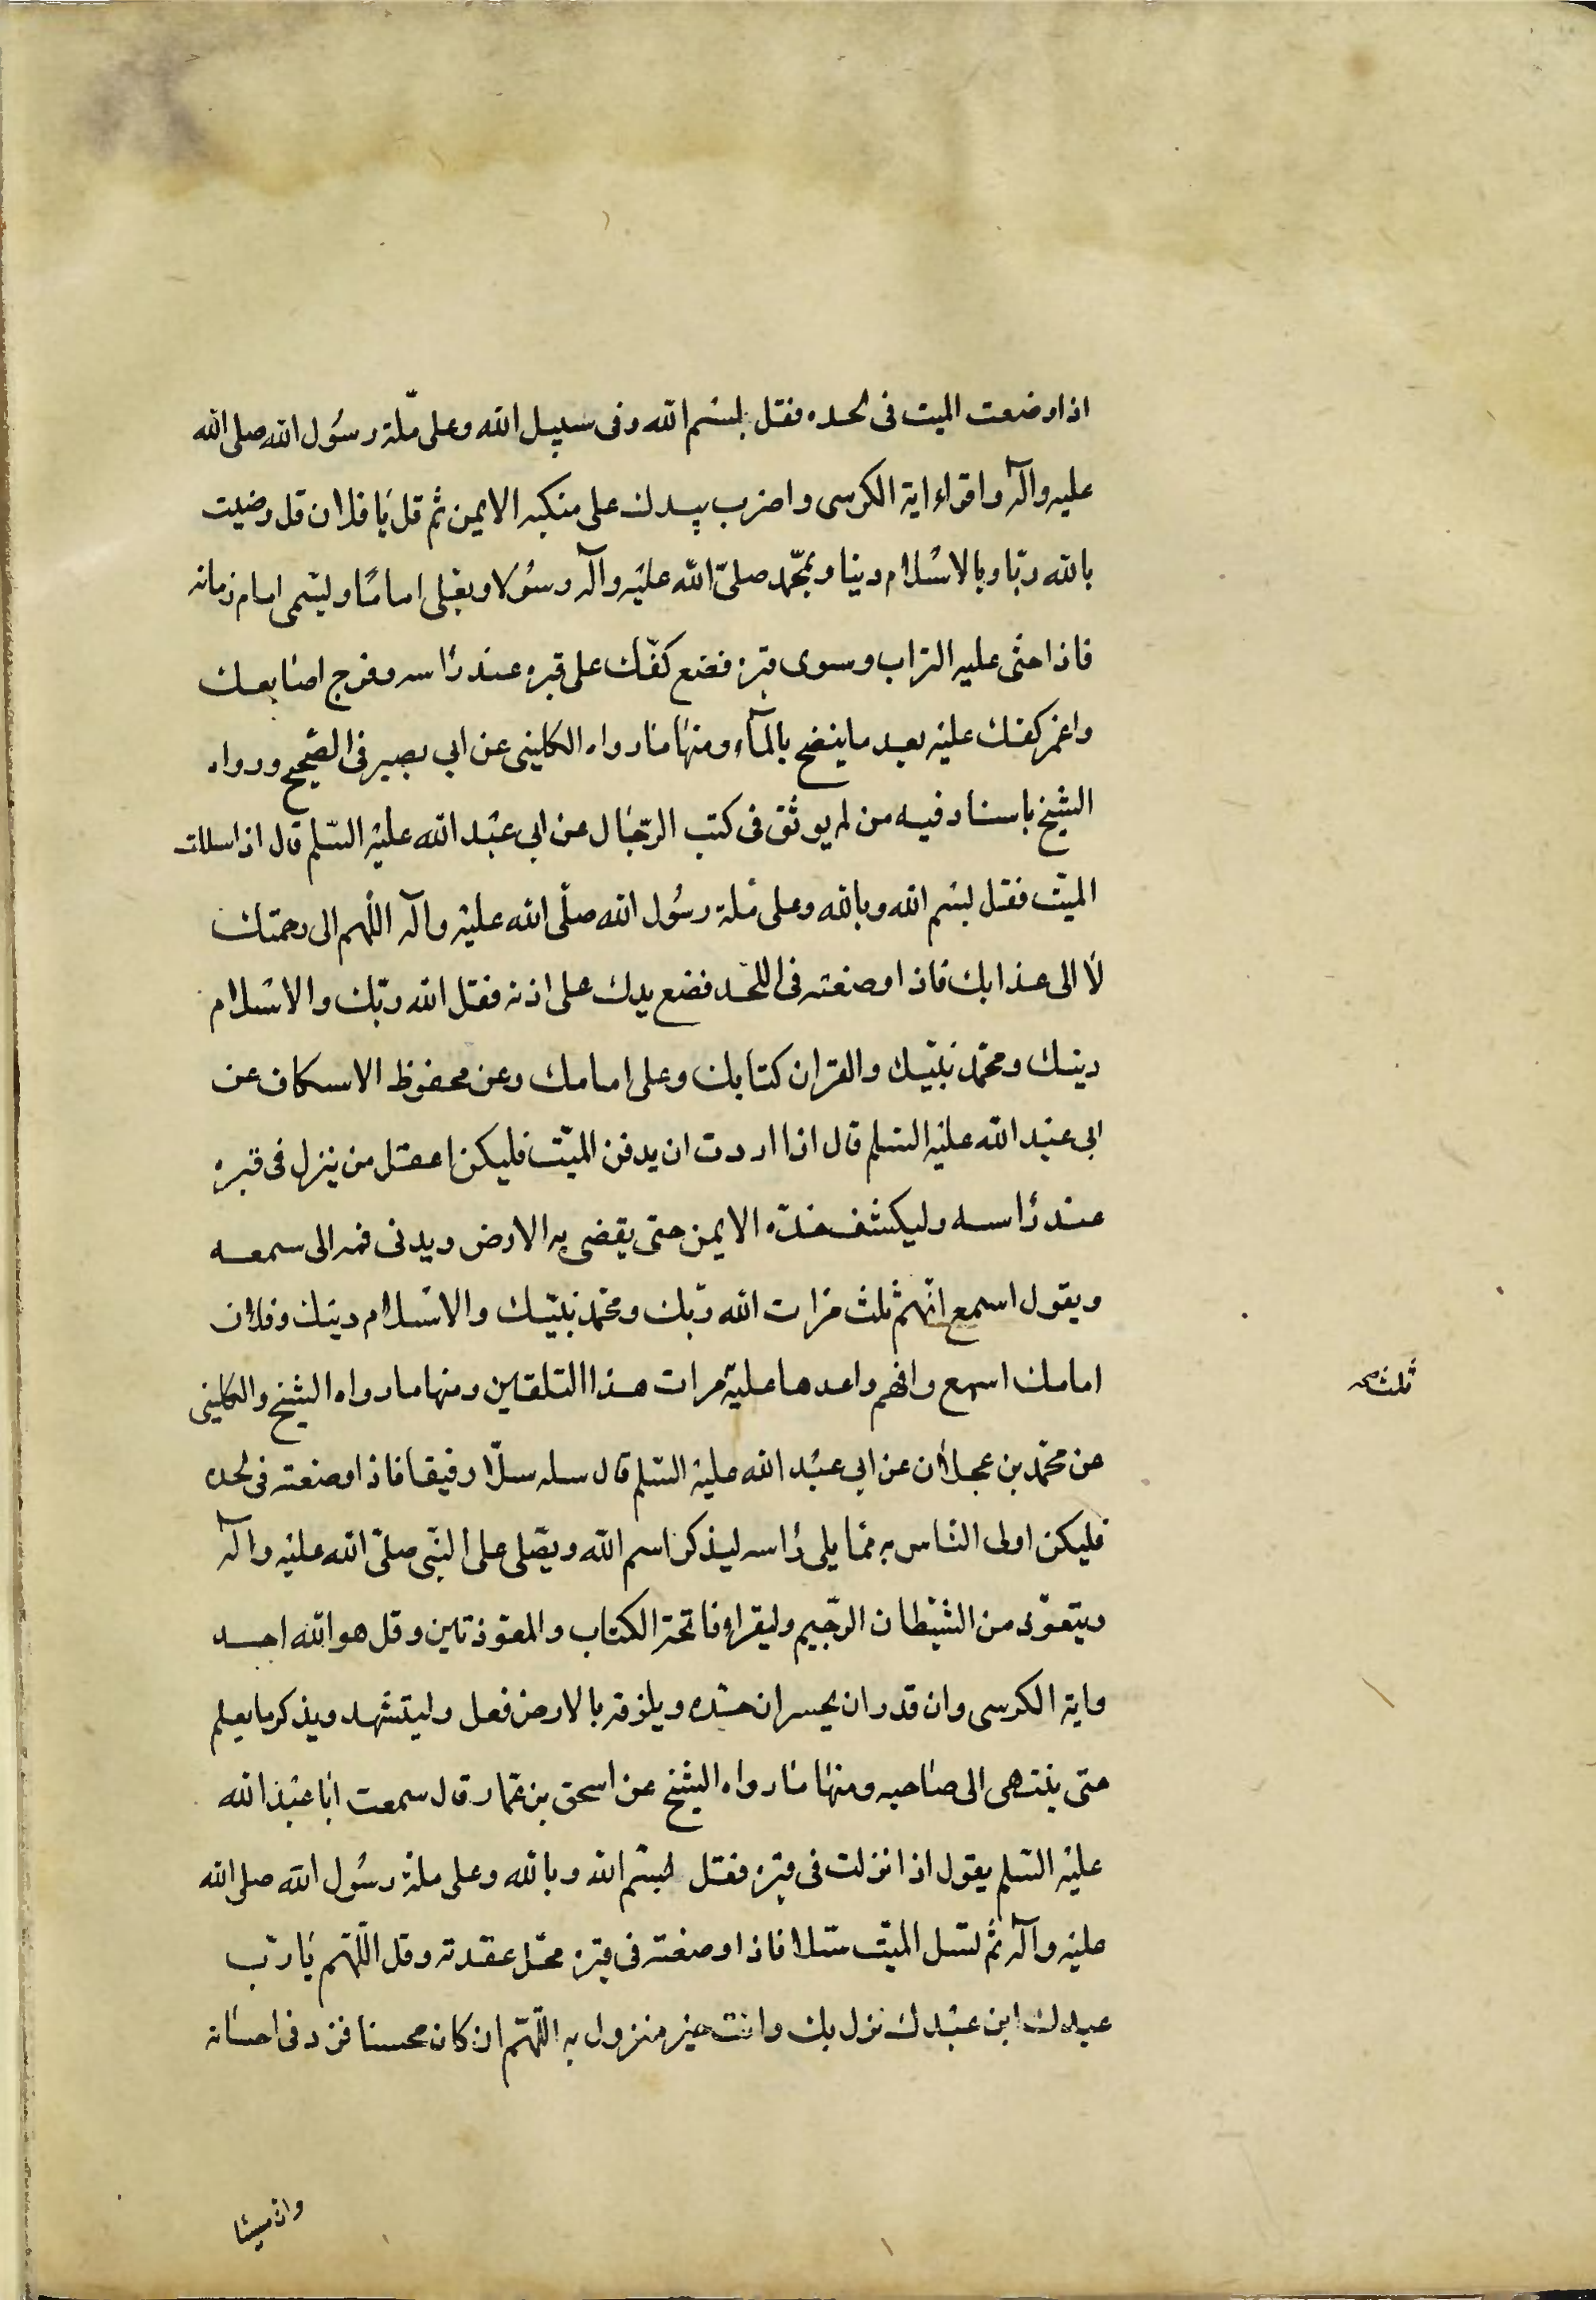 اذا وضعت الميت فى لحده فقل بسم الله وفى سبيل الله وعلى ملّة رسُول الله صلى الله
عليه وآله واقراء اية الكرسى واضرب بيدك على منكبه الايمن ثم قل يا فلان قل رضيت
بالله ربّا وبالاسْلام دينا وبمحّمد صلىّ الله عليْه وآله رسُولا وبعلى امامًا وليسمى امام زمانه
فاذا حثى عليه التراب وسوى قبره فضع كفّك على قبره عند رأسه وفرج اصابعك
واغمز كفك عليْه بعد ما ينضح بالمآء ومنها ما رواه الكلينى عن ابى بصير فى الصّحيح ورواه
الشيخ باسناد فيه من لم يوثق فى كتب الرّجال عن ابى عبْد الله عليْه السّلم قال اذا سللت
الميّت فقل بسْم الله وبالله وعلى ملة رسُول الله صلّى الله عليْه وآله اللّهم الى رحمتك
لا الى عذابك فاذا وضعته فى اللحد فضع يدك على اذنه فقل الله ربّك والاسْلام
دينك ومحمّد نبيّك والقران كتابك وعلى امامك وعن محفوظ الاسكاف عن
ابى عبْد الله عليْه السّلم قال اذا اردت ان يدفن الميّت فليكن اعقل من ينزل فى قبره
عند رأسه وليكشف خدّه الايمن حتى يفضى به الارض ويدنى فمه الى سمعه
ويقول اسمع افهم ثلث مرات الله ربّك ومحمّد نبيّك والاسْلام دينك وفلان
امامك اسمع وافهم واعدها عليه مرات هذا التلقين ومنها ما رواه الشيخ والكلينى
ثلث صح
عن محمّد بن عجلان عن ابى عبْد الله عليْه السّلم قال سله سلّا رفيقا فاذا وضعته فى لحده
فليكن اولى الناس به ممّا يلى رأسه ليذكر اسم الله ويصّلى على النبّى صلىّ الله عليْه وآله
ويتعوّذ من الشيْطان الرجّيم وليقراء فاتحة الكتاب والمعوّذتين وقل هو الله احد
واية الكرسى وان قدر ان يحسر ان خدّه ويلزقه بالارض فعل وليتشهد ويذكر ما يعلم
حتى ينتهى الى صاحبه ومنها ما رواه الشيخ عن اسحق بن عمّار قال سمعت ابا عبْد الله
عليْه السّلم يقول اذا نزلت فى قبره فقل بسْم الله وبالله وعلى ملة رسُول الله صلى الله
عليْه وآله ثم تسل الميّت سّلا فاذا وضعته فى قبره محّل عقدته وقل اللّهم يا ربّ
عبدك ابن عبْدك نزل بك وانت خير منزول به اللّهّم ان كان محسنا فزد فى احسانه
وان مسيئا